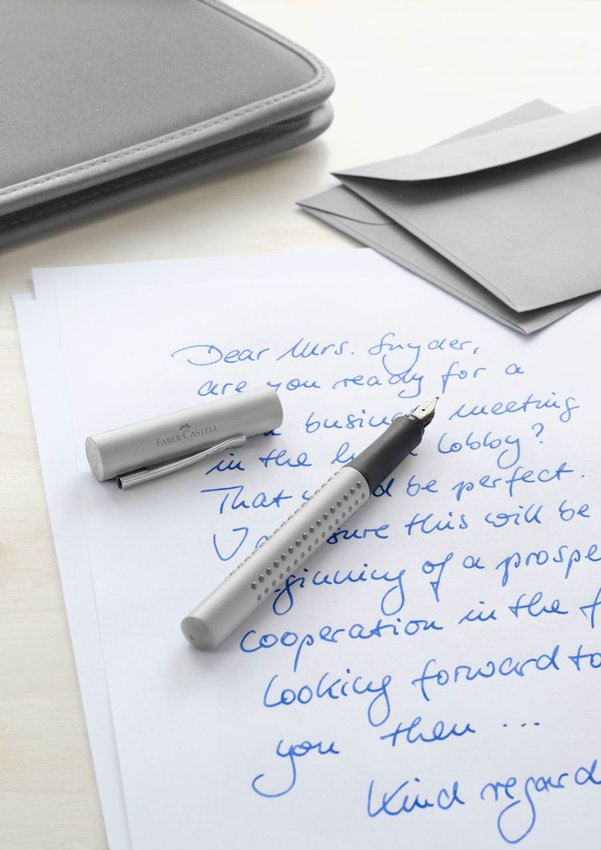 FABER-CASTELL
Dear Mrs. Snyder,
are you ready for a
business meeting
in the lobby?
That be perfect.
sure this will be
ginning of a prospe
cooperation in the f
looking forward to
you then ...
Kind regard